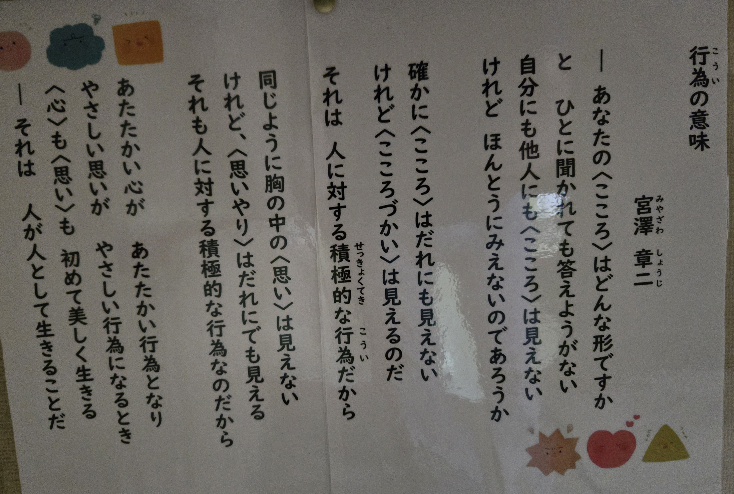 行為の意味
宮澤 章二
― あなたの〈こころ〉はどんな形ですか
と ひとに聞かれても答えようがない
自分にも他人にも〈こころ〉は見えない
けれど ほんとうにみえないのであろうか
確かに〈こころ〉はだれにも見えない
けれど〈こころづかい〉は見えるのだ
それは 人に対する積極的な行為だから
同じように胸の中の〈思い〉は見えない
けれど、〈思いやり〉はだれにでも見える
それも人に対する積極的な行為なのだから
あたたかい心が あたたかい行為となり
やさしい思いが やさしい行為になるとき
〈心〉も〈思い〉も 初めて美しく生きる
― それは 人が人として生きることだ